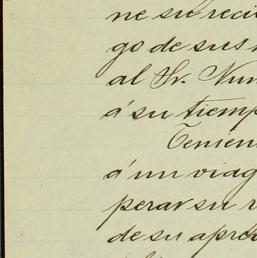 ne su reci
go de sus
al Sr. Nun
á su tiemp
Tenien
á un viag
perar su r
de su apre